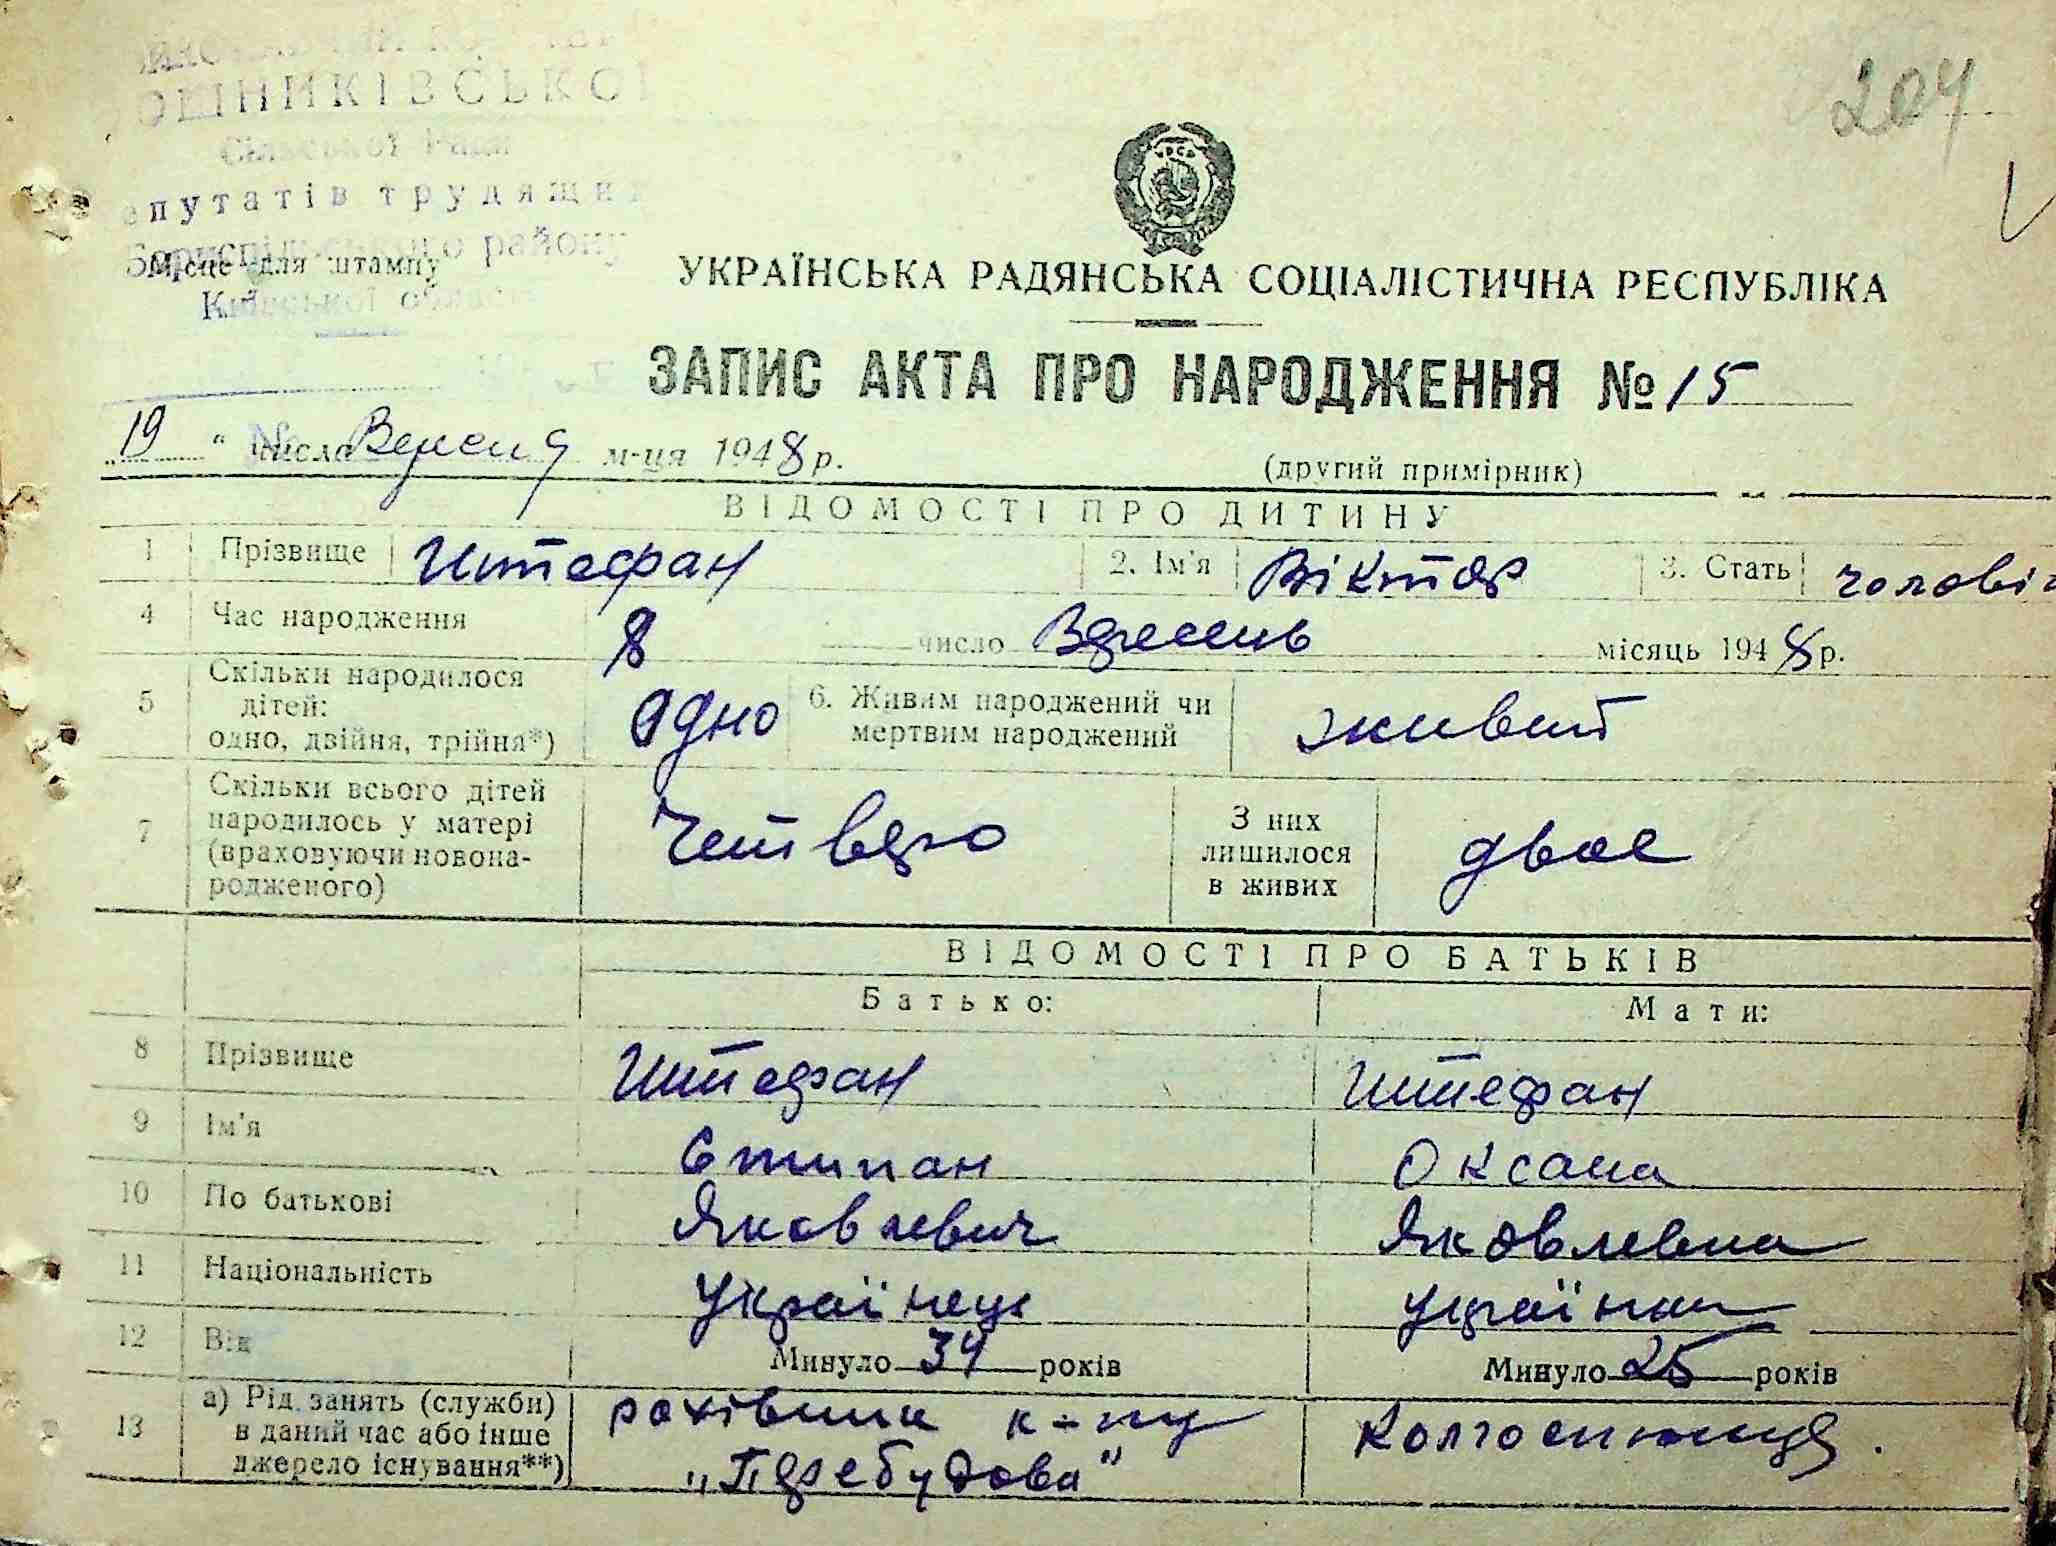 ОШНИКІВСЬКОЇ
Сільської Ради
епутатів трудящих
Бориспільського району
Місце для штампу
Київської області
204
УКРАЇНСЬКА РАДЯНСЬКА СОЦІАЛІСТИЧНА РЕСПУБЛІКА
ЗАПИС АКТА ПРО НАРОДЖЕННЯ № 15
„19“ числа Вересня м-ця 1948 р.
(другий примірник)
ВІДОМОСТІ ПРО ДИТИНУ
1 Прізвище Штефан 2. Ім'я Віктор 3. Стать чоловіч
4 Час народження 8 число Вересень місяць 1948 р.
5 Скільки народилося дітей: одно, двійня, трійня*) Одно 6. Живим народжений чи мертвим народжений живий
7 Скільки всього дітей народилось у матері (враховуючи новонародженого) Четверо З них лишилося в живих двое
ВІДОМОСТІ ПРО БАТЬКІВ
Батько: Мати:
8 Прізвище Штефан Штефан
9 Ім'я Стипан Оксана
10 По батькові Яковлевич Яковлевна
11 Національність Українець Українка
12 Вік Минуло 34 років Минуло 25 років
13 а) Рід занять (служби) в даний час або інше джерело існування**) рахівник к-пу „Перебудова" Колгоспниця.